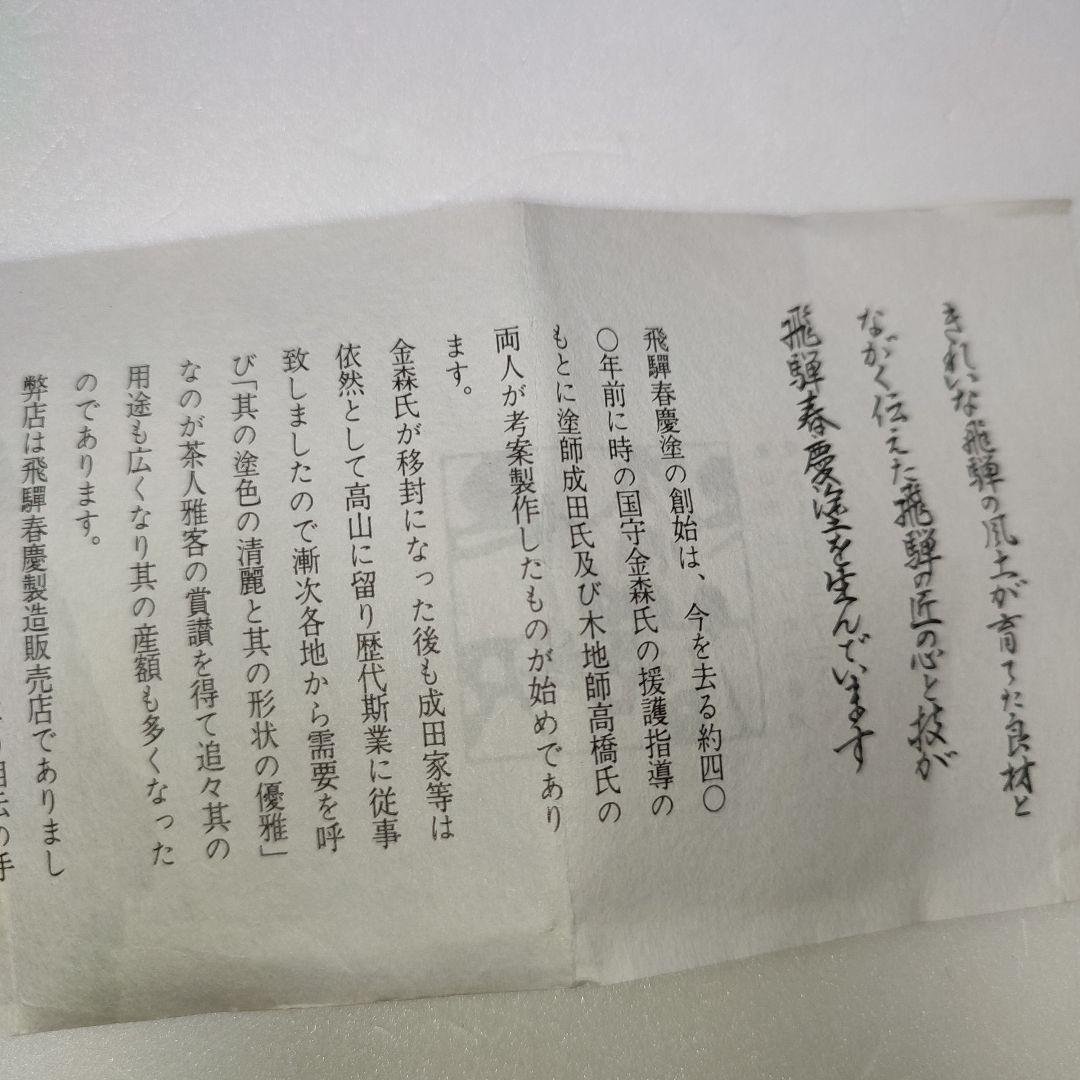 きれいな飛騨の風土が育てた良材と
ながく伝えた飛騨の匠の心と技が
飛騨春慶塗を生んでいます
飛驒春慶塗の創始は、今を去る約四〇
〇年前に時の国守金森氏の援護指導の
もとに塗師成田氏及び木地師高橋氏の
両人が考案製作したものが始めであり
ます。
金森氏が移封になった後も成田家等は
依然として高山に留り歴代斯業に従事
致しましたので漸次各地から需要を呼
び「其の塗色の清麗と其の形状の優雅」
なのが茶人雅客の賞讃を得て追々其の
用途も広くなり其の産額も多くなった
のであります。
弊店は飛驒春慶製造販売店でありまし
の手